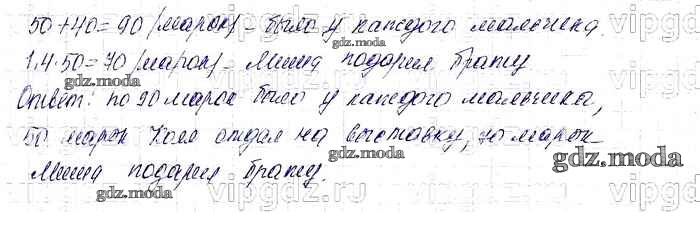 50+40=90 (марок) - было у каждого мальчика.
1,4·50=70 (марок) - Миша подарил брату
Ответ: по 90 марок было у каждого мальчика,
50 марок Коля отдал на выставку, 70 марок
Миша подарил брату.
gdz.moda
gdz.moda
gdz.moda
gdz.moda
gdz.moda
vipgdz.ru